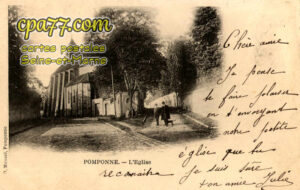 cpa77.com
cartes postales
Seine-et-Marne
Chère amie
Je pense
te faire plaisir
en t'envoyant
notre petite
église que tu
reconaitra
je suis sûre
ton amie Julie
POMPONNE. — L'Eglise